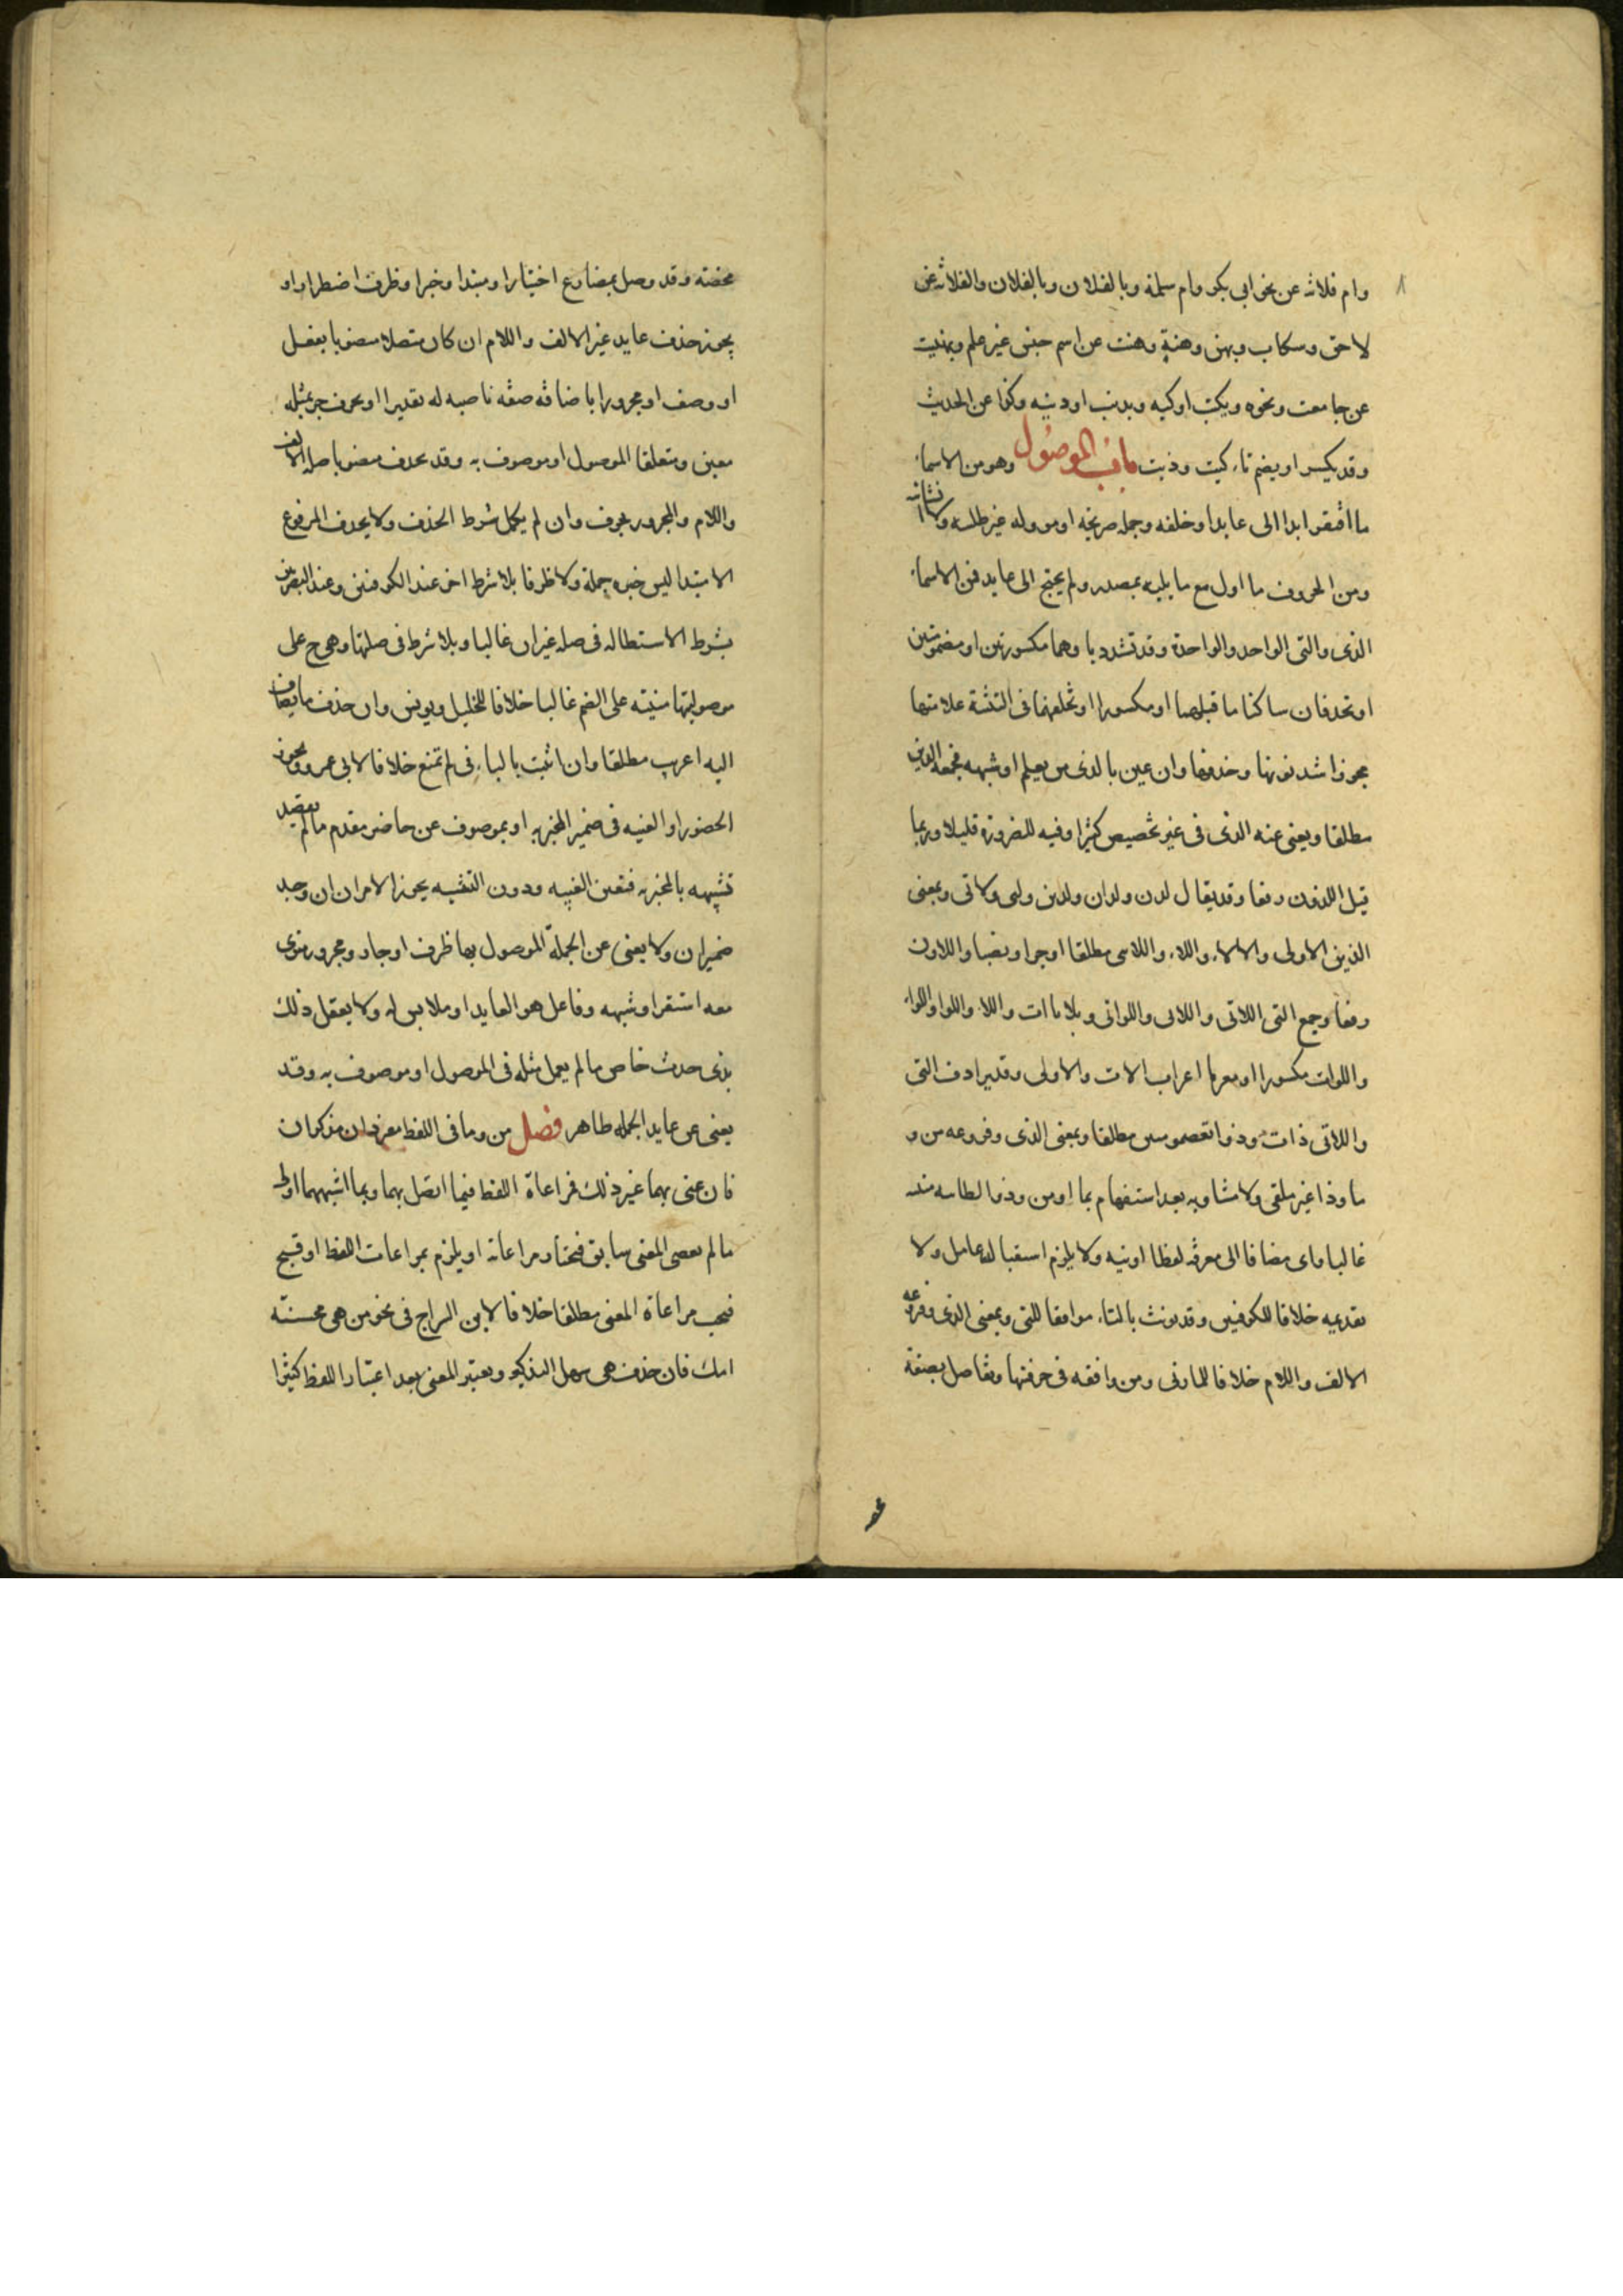 وام فلانه عن نحو ابي بكر وام سلمة وبالفلان وبالفلان والفلانه عن
لاحق وسكاب وبهن وهنةٍ وهنت عن اسم جنس غير علم وبهنيت
عن جامعت ونحوه وبكيت اوكيه وبذيت اوديته وكذا عن الحديث
وقد يكسر او يضم تاء كيت وذيت باب الموصول وهو من الاسماء
ما افتقر ابدا الى عايد او خلفه وجمله صريحه او مووله غير طلبيه ولا انشائيه
ومن الحروف ما اول مع ما يليه بمصدر ولم يحتج الى عايد فمن الاسماء
الذى والتى للواحد والواحدة وقد تشدد ياوهما مكسورتين او مضمومتين
او تحذفان ساكنا ما قبلهما او مكسورا او تخلفهما فى التثنية علامتها
مجوزا شد نونها وحذفها وان عين بالذى من يعلم او شبهه فجمعه الذين
مطلقا ويغنى عنه الذى فى غير تخصيص كثيرا وفيه للضرورة قليلا وربما
قيل اللذون رفعا وقد يقال لذن ولذان ولذين ولتى ولاتى وبمعنى
الذين الاولى والالاء واللاء واللاى مطلقا او جرا ونصبا واللاون
رفعا وجمع التى اللاتى واللاى واللواتى وبلا ياات واللا واللوا واللواء
واللوات مكسورا او معربا اعراب الات والاولى وقد يرادف التى
واللاتى ذات وذوات مطلقا وبمعنى الذى وفروعه من و
ما وذا غير ملقى ولا مشار به بعد استفهام بما او من وذو الطائيه مبنيه
غالبا واى مضافا الى معرفه لفظا او نيه ولا يلزم استقبال عامله ولا
تقديمه خلافا للكوفيين وقد يونث بالتاء موافقا للتى وبمعنى الذى وفروعه
الالف واللام خلافا للمازنى ومن وافقه فى حرفيتها وتوصل بصفة
محضة وقد وصل بمضارع اختيارا ومبتدا وخبر او ظرف اضطرارا و
يجوز حذف عايد غير الالف واللام ان كان متصلا منصوبا بفعل
او وصف او مجرورا باضافة صفه ناصبه له تقديرا او بحرف جر بمثله
معين ومتعلقا الموصول او موصوف به وقد يحذف منصوبا صله الالف
واللام والمجرور بحرف وان لم يكمل شرط الحذف ولا يحذف المرفوع
الا مبتدا ليس خبره جملة ولا ظرفا بلا شرط اخر عند الكوفيين وعند البصريين
بشرط الاستطاله فى صله غير اى غالبا وبلا شرط فى صلتها وهى ح على
موصوليتها مبنيه على الضم غالبا خلافا للخليل ويونس وان حذف ما يضاف
اليه اعرب مطلقا وان انثت بالتاء لم تمنع خلافا لابى عمرو ويجوز
الحضور او الغيبه فى ضمير المخبر به او بموصوف عن حاضر مقدم مالم يقصد
تشبيهه بالمخبر به فتعين الغيبه ودون التشبيه يجوز الامران ان وجد
ضميران ولا يغنى عن الجملة الموصول بها ظرف او جار ومجرور منوى
معه استقر او شبهه وفاعل هو العايد او ملابس له ولا يفعل ذلك
بذى حدث خاص مالم يعمل مثله فى الموصول او موصوف به وقد
يغنى عن عايد الجمله ظاهر فصل من وما فى اللفظ مفردان مذكران
فان عنى بهما غير ذلك فمراعاة اللفظ فيما اتصل بهما وبما اشبههما اولى
مالم يعضد المعنى سابق فيختار مراعاته او يلزم بمراعات اللفظ او قبح
فيجب مراعاة المعنى مطلقا خلافا لابن السراج فى نحو من هى محسنة
امك فان حذف هى سهل التذكير ويعتبر المعنى بعد اعتبار اللفظ كثيرا